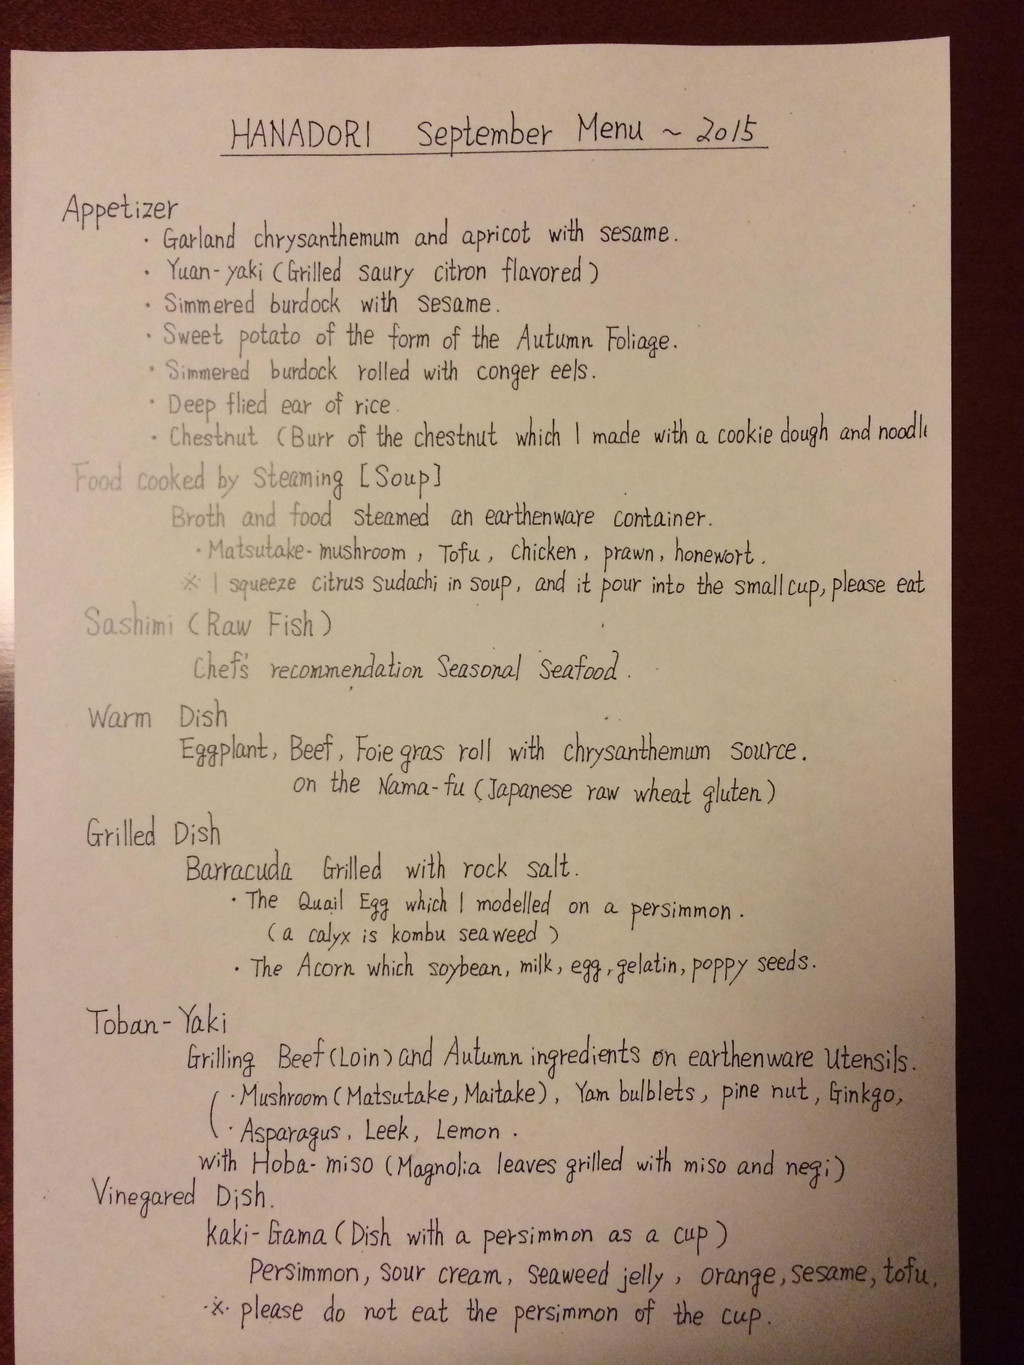 HANADORI September Menu ~ 2015
Appetizer
・Garland chrysanthemum and apricot with sesame.
・Yuan-yaki (Grilled saury citron flavored)
・Simmered burdock with sesame.
・Sweet potato of the form of the Autumn Foliage.
・Simmered burdock rolled with conger eels.
・Deep flied ear of rice.
・Chestnut (Burr of the chestnut which I made with a cookie dough and noodle
Food cooked by Steaming [Soup]
Broth and food steamed an earthenware container.
・Matsutake-mushroom, Tofu, chicken, prawn, honewort.
※ I squeeze citrus sudachi in soup, and it pour into the small cup, please eat
Sashimi (Raw Fish)
Chefs' recommendation Seasonal Seafood.
Warm Dish
Eggplant, Beef, Foie gras roll with chrysanthemum source.
on the Nama-fu (Japanese raw wheat gluten)
Grilled Dish
Barracuda Grilled with rock salt.
・The Quail Egg which I modelled on a persimmon.
(a calyx is kombu seaweed)
・The Acorn which soybean, milk, egg, gelatin, poppy seeds.
Toban-Yaki
Grilling Beef (Loin) and Autumn ingredients on earthenware Utensils.
・Mushroom (Matsutake, Maitake), Yam bulblets, pine nut, Ginkgo,
・Asparagus, Leek, Lemon.
with Hoba-miso (Magnolia leaves grilled with miso and negi)
Vinegared Dish.
kaki-Gama (Dish with a persimmon as a cup)
Persimmon, sour cream, seaweed jelly, orange, sesame, tofu.
※ please do not eat the persimmon of the cup.